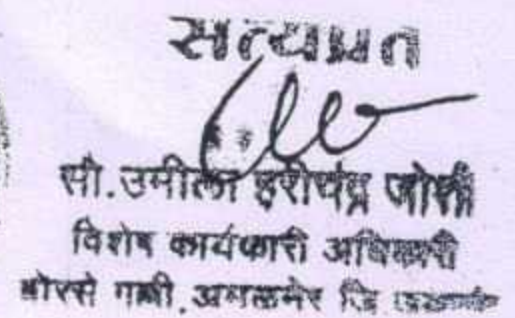 सत्यप्रत
सौ.उर्मीला हरीचंद्र जोशी
विशेष कार्यकारी अधिकारी
बोरसे गल्ली.अमळनेर जि